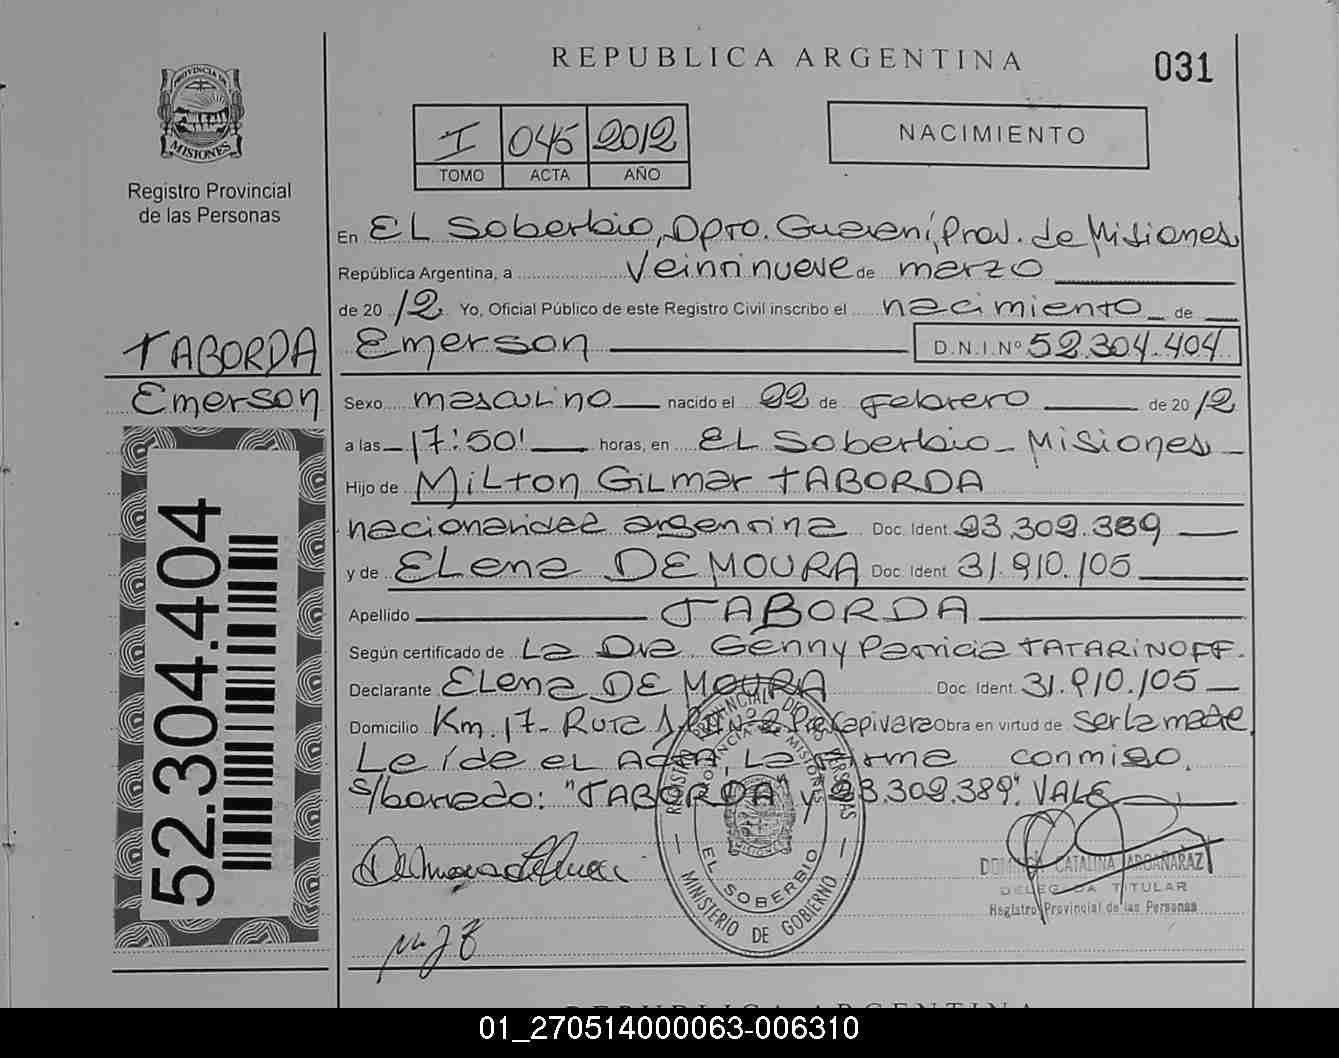 REPUBLICA ARGENTINA
031
PROVINCIA DE
MISIONES
Registro Provincial
de las Personas
I 045 2012
TOMO ACTA AÑO
NACIMIENTO
En EL Soberbio, Dpto. Guaraní, Prov. de Misiones
República Argentina, a Veintinueve de marzo
de 20 12 Yo, Oficial Público de este Registro Civil inscribo el nacimiento de
TABORDA
Emerson
Emerson D.N.I.Nº 52.304.404
Sexo masculino nacido el 22 de Febrero de 2012
a las 17:50' horas, en EL Soberbio - Misiones
Hijo de Milton Gilmar TABORDA
nacionalidad argentina Doc. Ident. 23.302.389
y de ELena DE MOURA Doc. Ident. 31.910.105
Apellido TABORDA
Según certificado de La Dra Genny Patricia TATARINOFF.
Declarante ELena DE MOURA Doc. Ident. 31.910.105
Domicilio Km. 17- Ruta Capivara Obra en virtud de ser la madre
Leída el Acta, La firma conmigo.
s/borrado: "TABORDA" y 23.302.389". VALE
52.304.404
EL SOBERBIO
MINISTERIO DE GOBIERNO
CATALINA
DELEGADA TITULAR
Registro Provincial de las Personas
REPUBLICA ARGENTINA
01_270514000063-006310